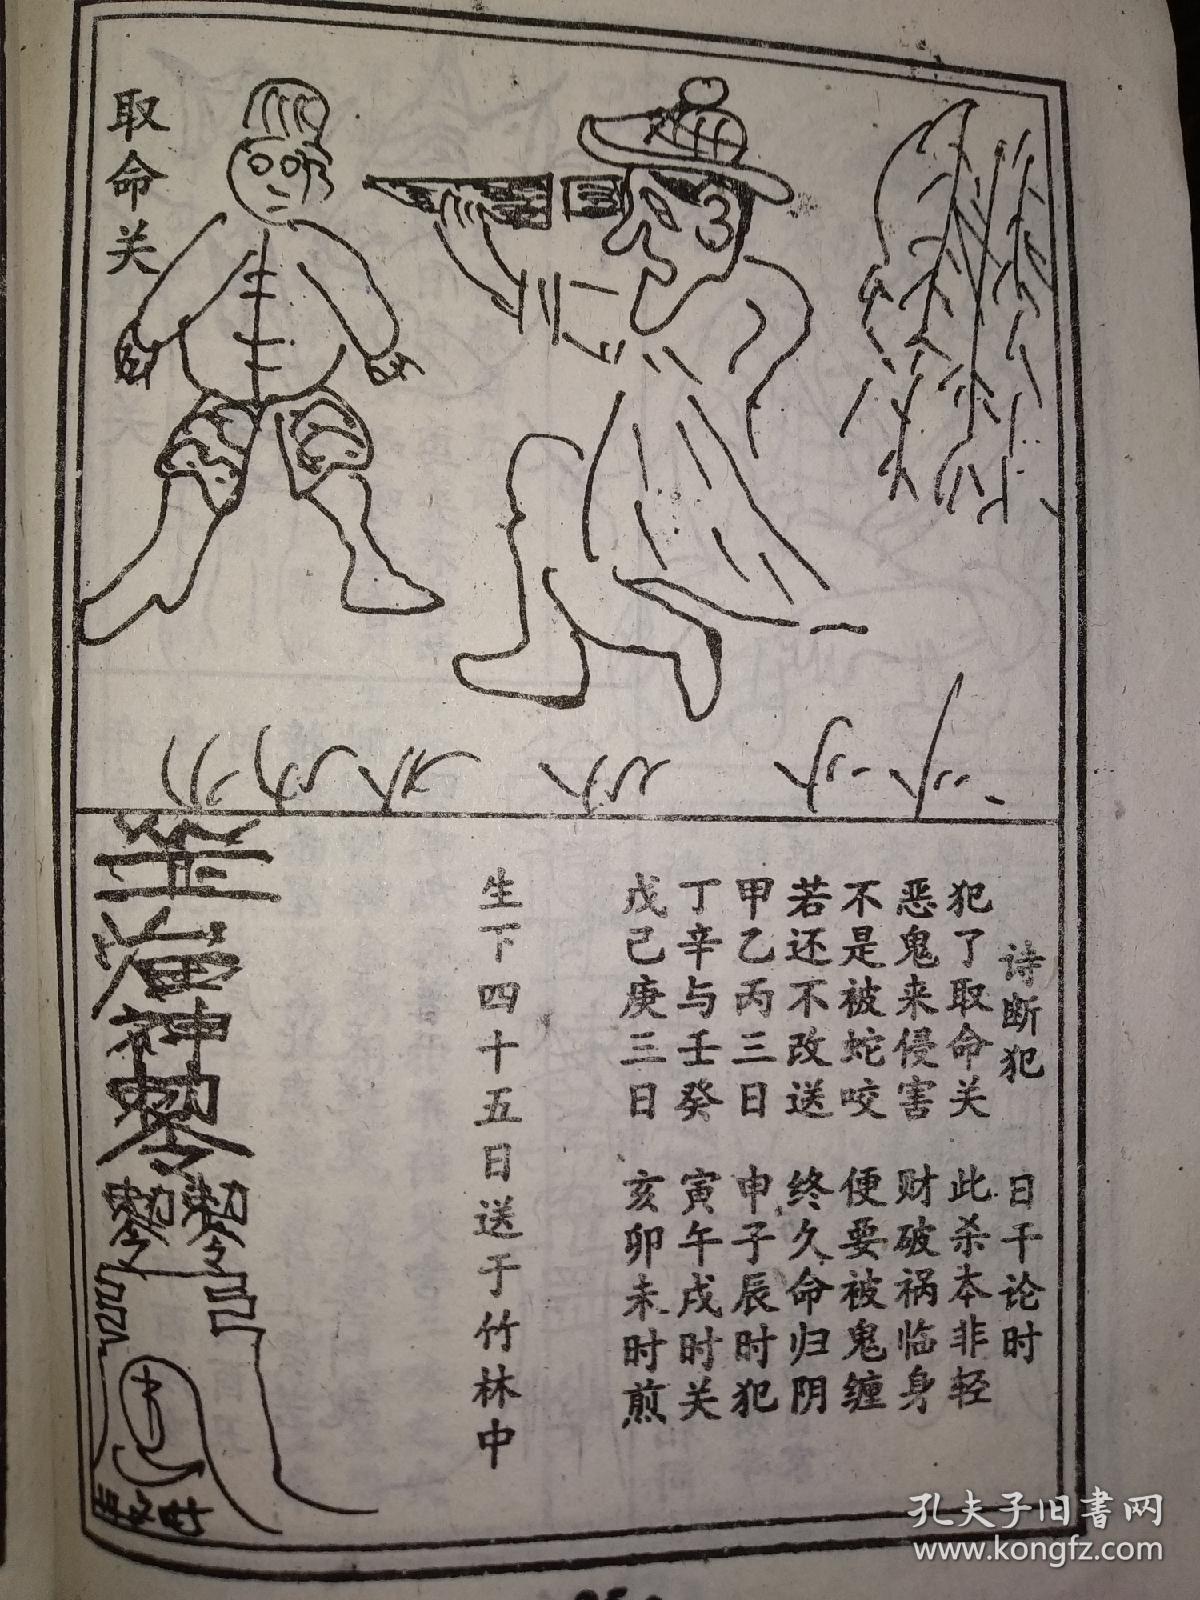 取命关
诗断犯 日干论时
犯了取命关 此杀本非轻
恶鬼来侵害 财破祸临身
不是被蛇咬 便要被鬼缠
若还不改送 终久命归阴
甲乙丙三日 申子辰时犯
丁辛与壬癸 寅午戌时关
戊己庚三日 亥卯未时煎
生下四十五日送于竹林中
孔夫子旧书网
www.kongfz.com